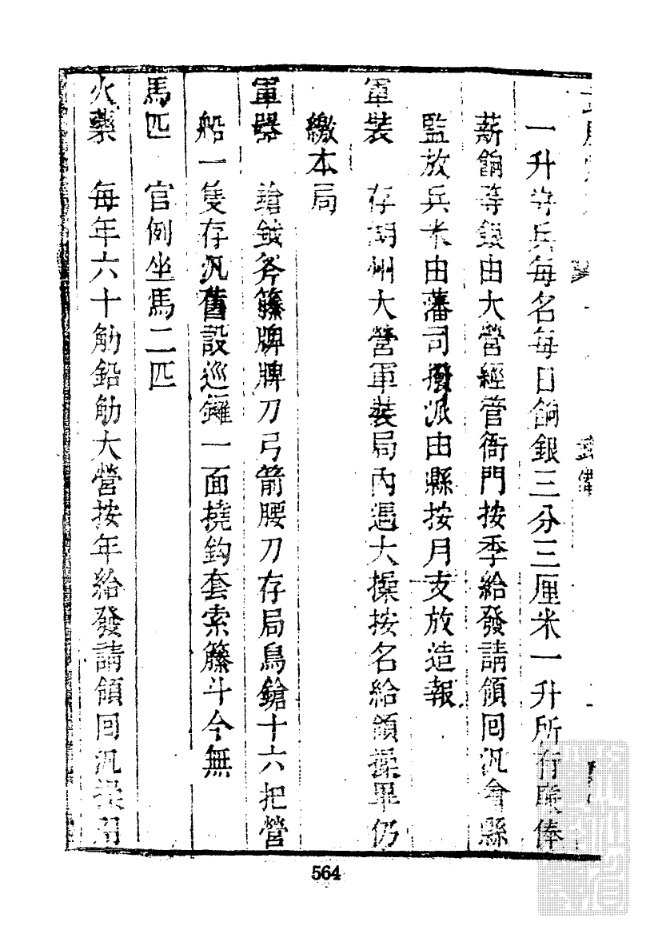 一升守兵每名每日餉銀三分三厘米一升所有廉俸
薪餉等銀由大營經管衙門按季給發請領回汛會縣
監放兵米由藩司撥派由縣按月支放造報
軍裝　存湖州大營軍裝局內遇大操按名給領操畢仍
繳本局
軍器　鎗鉞斧籐牌牌刀弓箭腰刀存局鳥鎗十六把營
船一隻存汛舊設巡鑼一面撓鈎套索籐斗今無
馬匹　官例坐馬二匹
火藥　每年六十觔鉛觔大營按年給發請領回汛操用
564